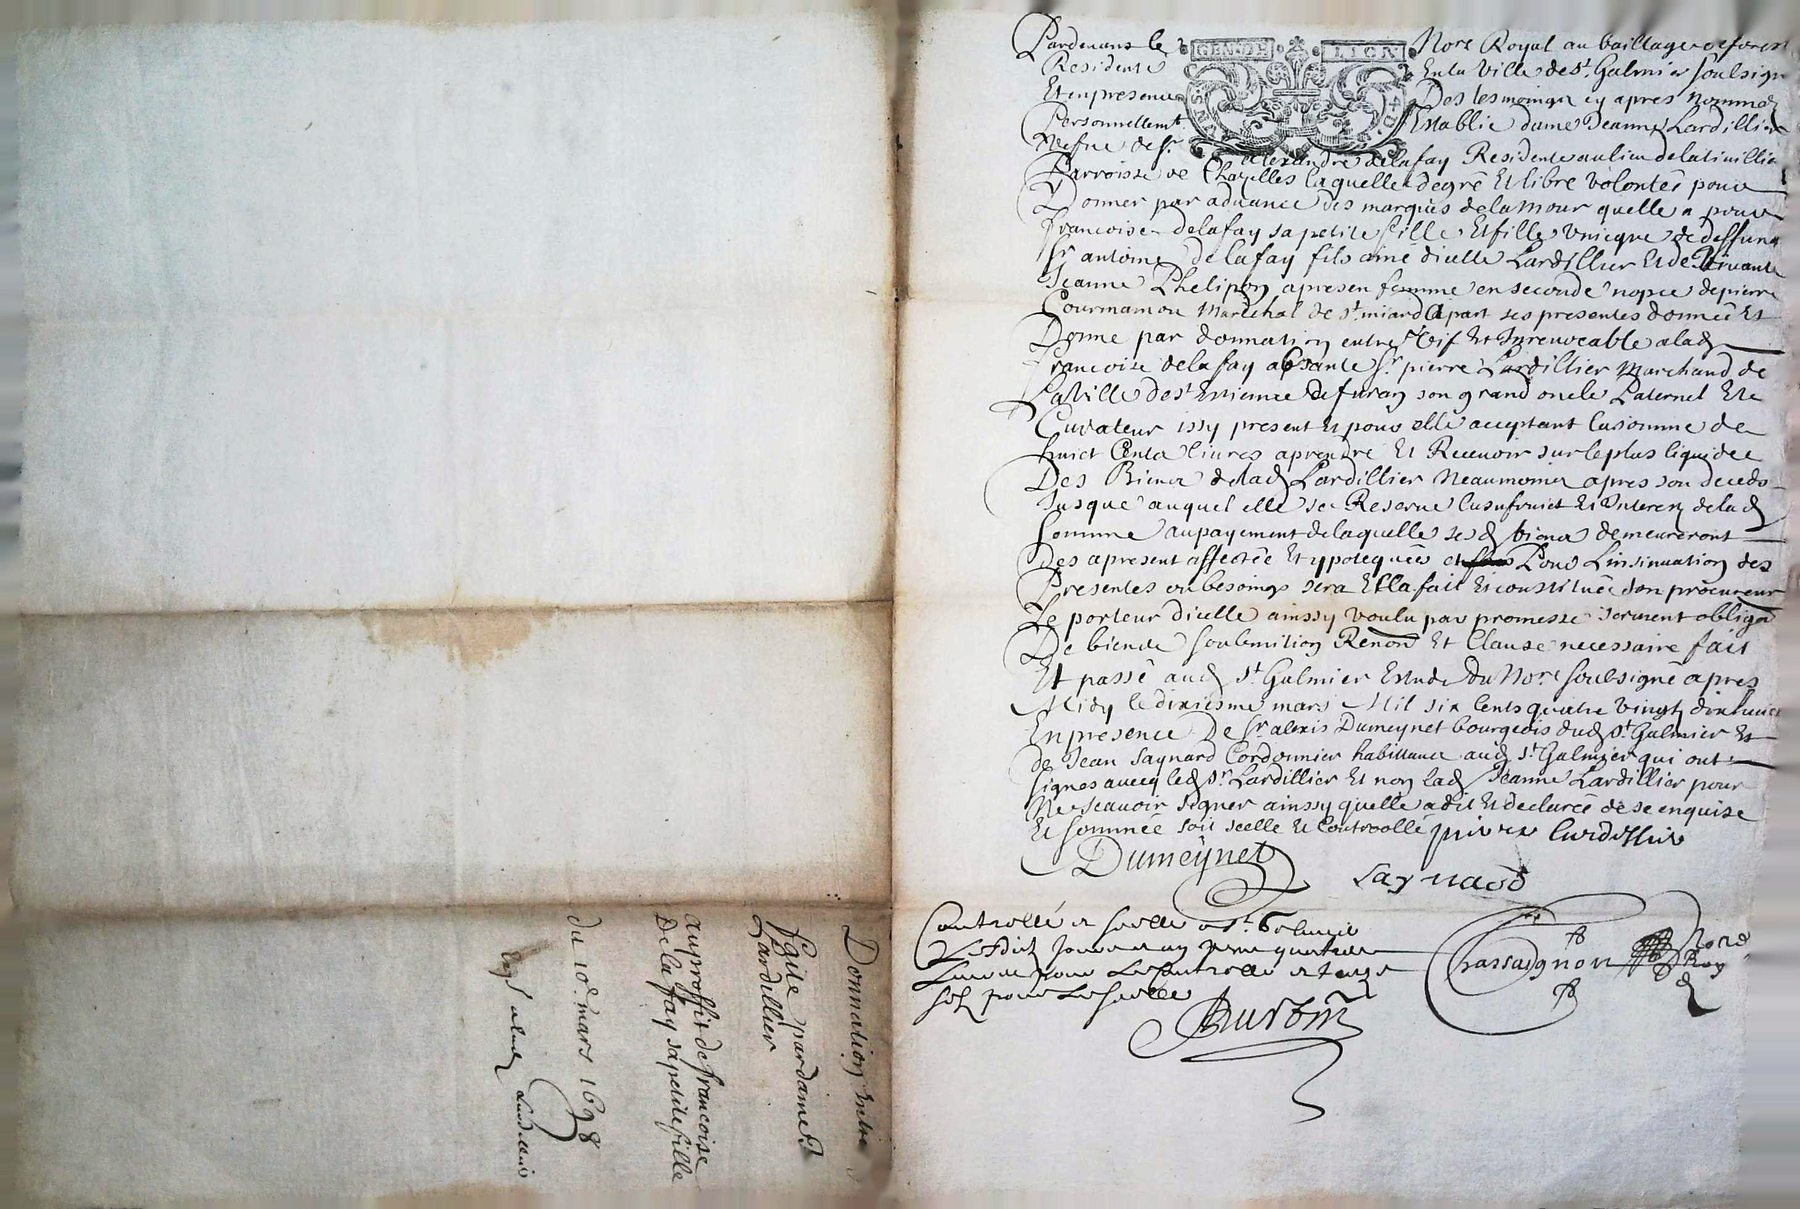 Pardevant le Nore Royal au baillage de forest
Residente En la Ville de St. Galmier soubsigne
Et en presence Des tesmoings cy apres nommez
GEN. DE LION
Personnellemt Establie dame Jeanne Lardillier
Vefve de Sr. Alexandre delafay Residente au lieu de la
Parroisse de Chazelles laquelle de gré Et libre volontés pour
Donner par advance des marques de lamour quelle a pour
francoise delafay sa petite fille Et fille Unicque de deffunt
Sr antoine delafay fils aine dicelle Lardillier Et de vivante
Jeanne Phelipon apresen femme en seconde nopce de pierre
Courmamon Marechal de St. miard a part ses presentes donnée Et
Donne par donnation entre vif Et Inrevocable a lad
francoise delafay absante Sr. pierre Lardillier Marchand de
La Ville de St Estienne de furan son grand oncle Paternel Et
Curateur issy present Et pour elle acceptant la somme de
huict Cents livres a prendre Et Recevoir sur le plus liquidee
Des Biens de lad Lardillier Neaumoins apres son deceds
Jusque auquel elle se Reserve lusufruict Et Interen de lad
somme au payement de laquelle sesd biens demeureront
Des apresent affectée Et ypotequées et Pour Linsinuation des
Presentes ou besoings sera Ella fait Et constituée son procureur
Le porteur dicelle ainssy voulu par promesse serment obliga
De biende soubmition Renon Et Clause necessaire fait
Et passé aud St. Galmier Estude du Nore soubsigné apres
Midy le dixiesme mars Mil six Cents quatre vingt dixhuict
En presence De Sr. alexis Dumeynet bourgeois dud St. Galmier Et
de Jean Saynard Cordonnier habittans aud St. Galmier qui ont
signes avecq led Sr. Lardillier Et non lad Jeanne Lardillier pour
Ne scavoir signer ainssy quelle a dit Et declarée de se enquise
Et sommée soit scelle Et Controollé pierre lardillier
Dumeynet
saynard
Controllé et scellé a St. Galmier
Chassaignon Nore Roy
pour Le Controlle et
solz pour Le scelle
Donnation entre
faite par dame J
Lardillier
au proffit de francoise
De la fay sa petite fille
du 10e. mars 1698